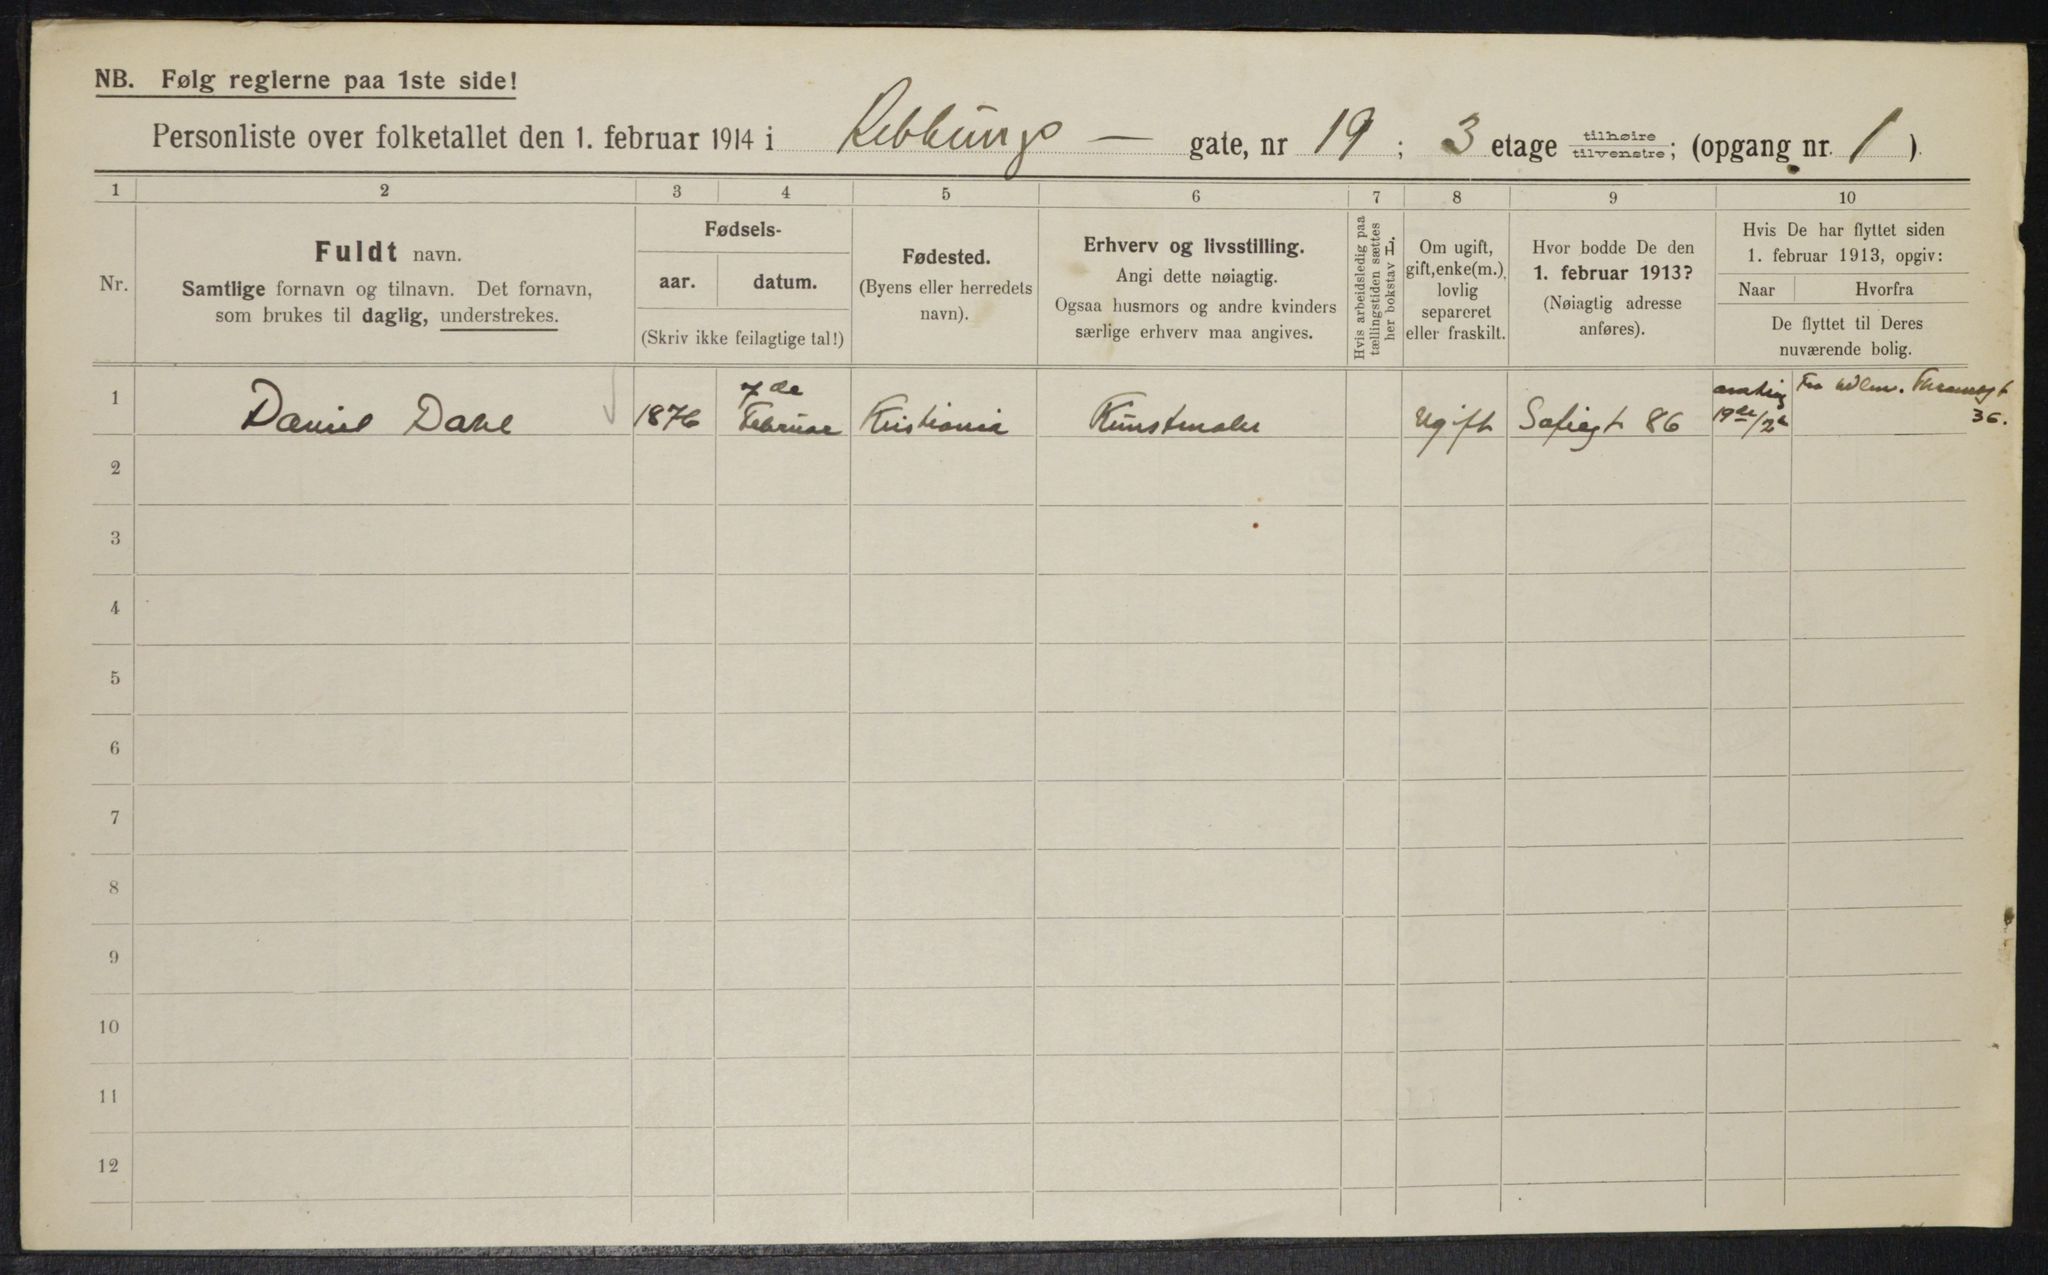 NB. Følg reglerne paa 1ste side!
Personliste over folketallet den 1. februar 1914 i Kebbungs — gate, nr 19 ; 3 etage tilhøire tilvenstre; (opgang nr. 1 ).
1 2 3 4 5 6 7 8 9 10
Nr.
Fuldt navn.
Samtlige fornavn og tilnavn. Det fornavn,
som brukes til daglig, understrekes.
Fødsels-
aar. datum.
(Skriv ikke feilagtige tal!)
Fødested.
(Byens eller herredets
navn).
Erhverv og livsstilling.
Angi dette nøiagtig.
Ogsaa husmors og andre kvinders
særlige erhverv maa angives.
Hvis arbeidsledig paa
tællingstiden sættes
her bokstav L.
Om ugift,
gift, enke(m.),
lovlig
separeret
eller fraskilt.
Hvor bodde De den
1. februar 1913?
(Nøiagtig adresse
anføres).
Hvis De har flyttet siden
1. februar 1913, opgiv:
Naar Hvorfra
De flyttet til Deres
nuværende bolig.
1 Daniel Dahl 1876 7de Februar Kristiania Kunstmaler Ugift Sofiegt 86 19de/2 Fra 36.
2
3
4
5
6
7
8
9
10
11
12